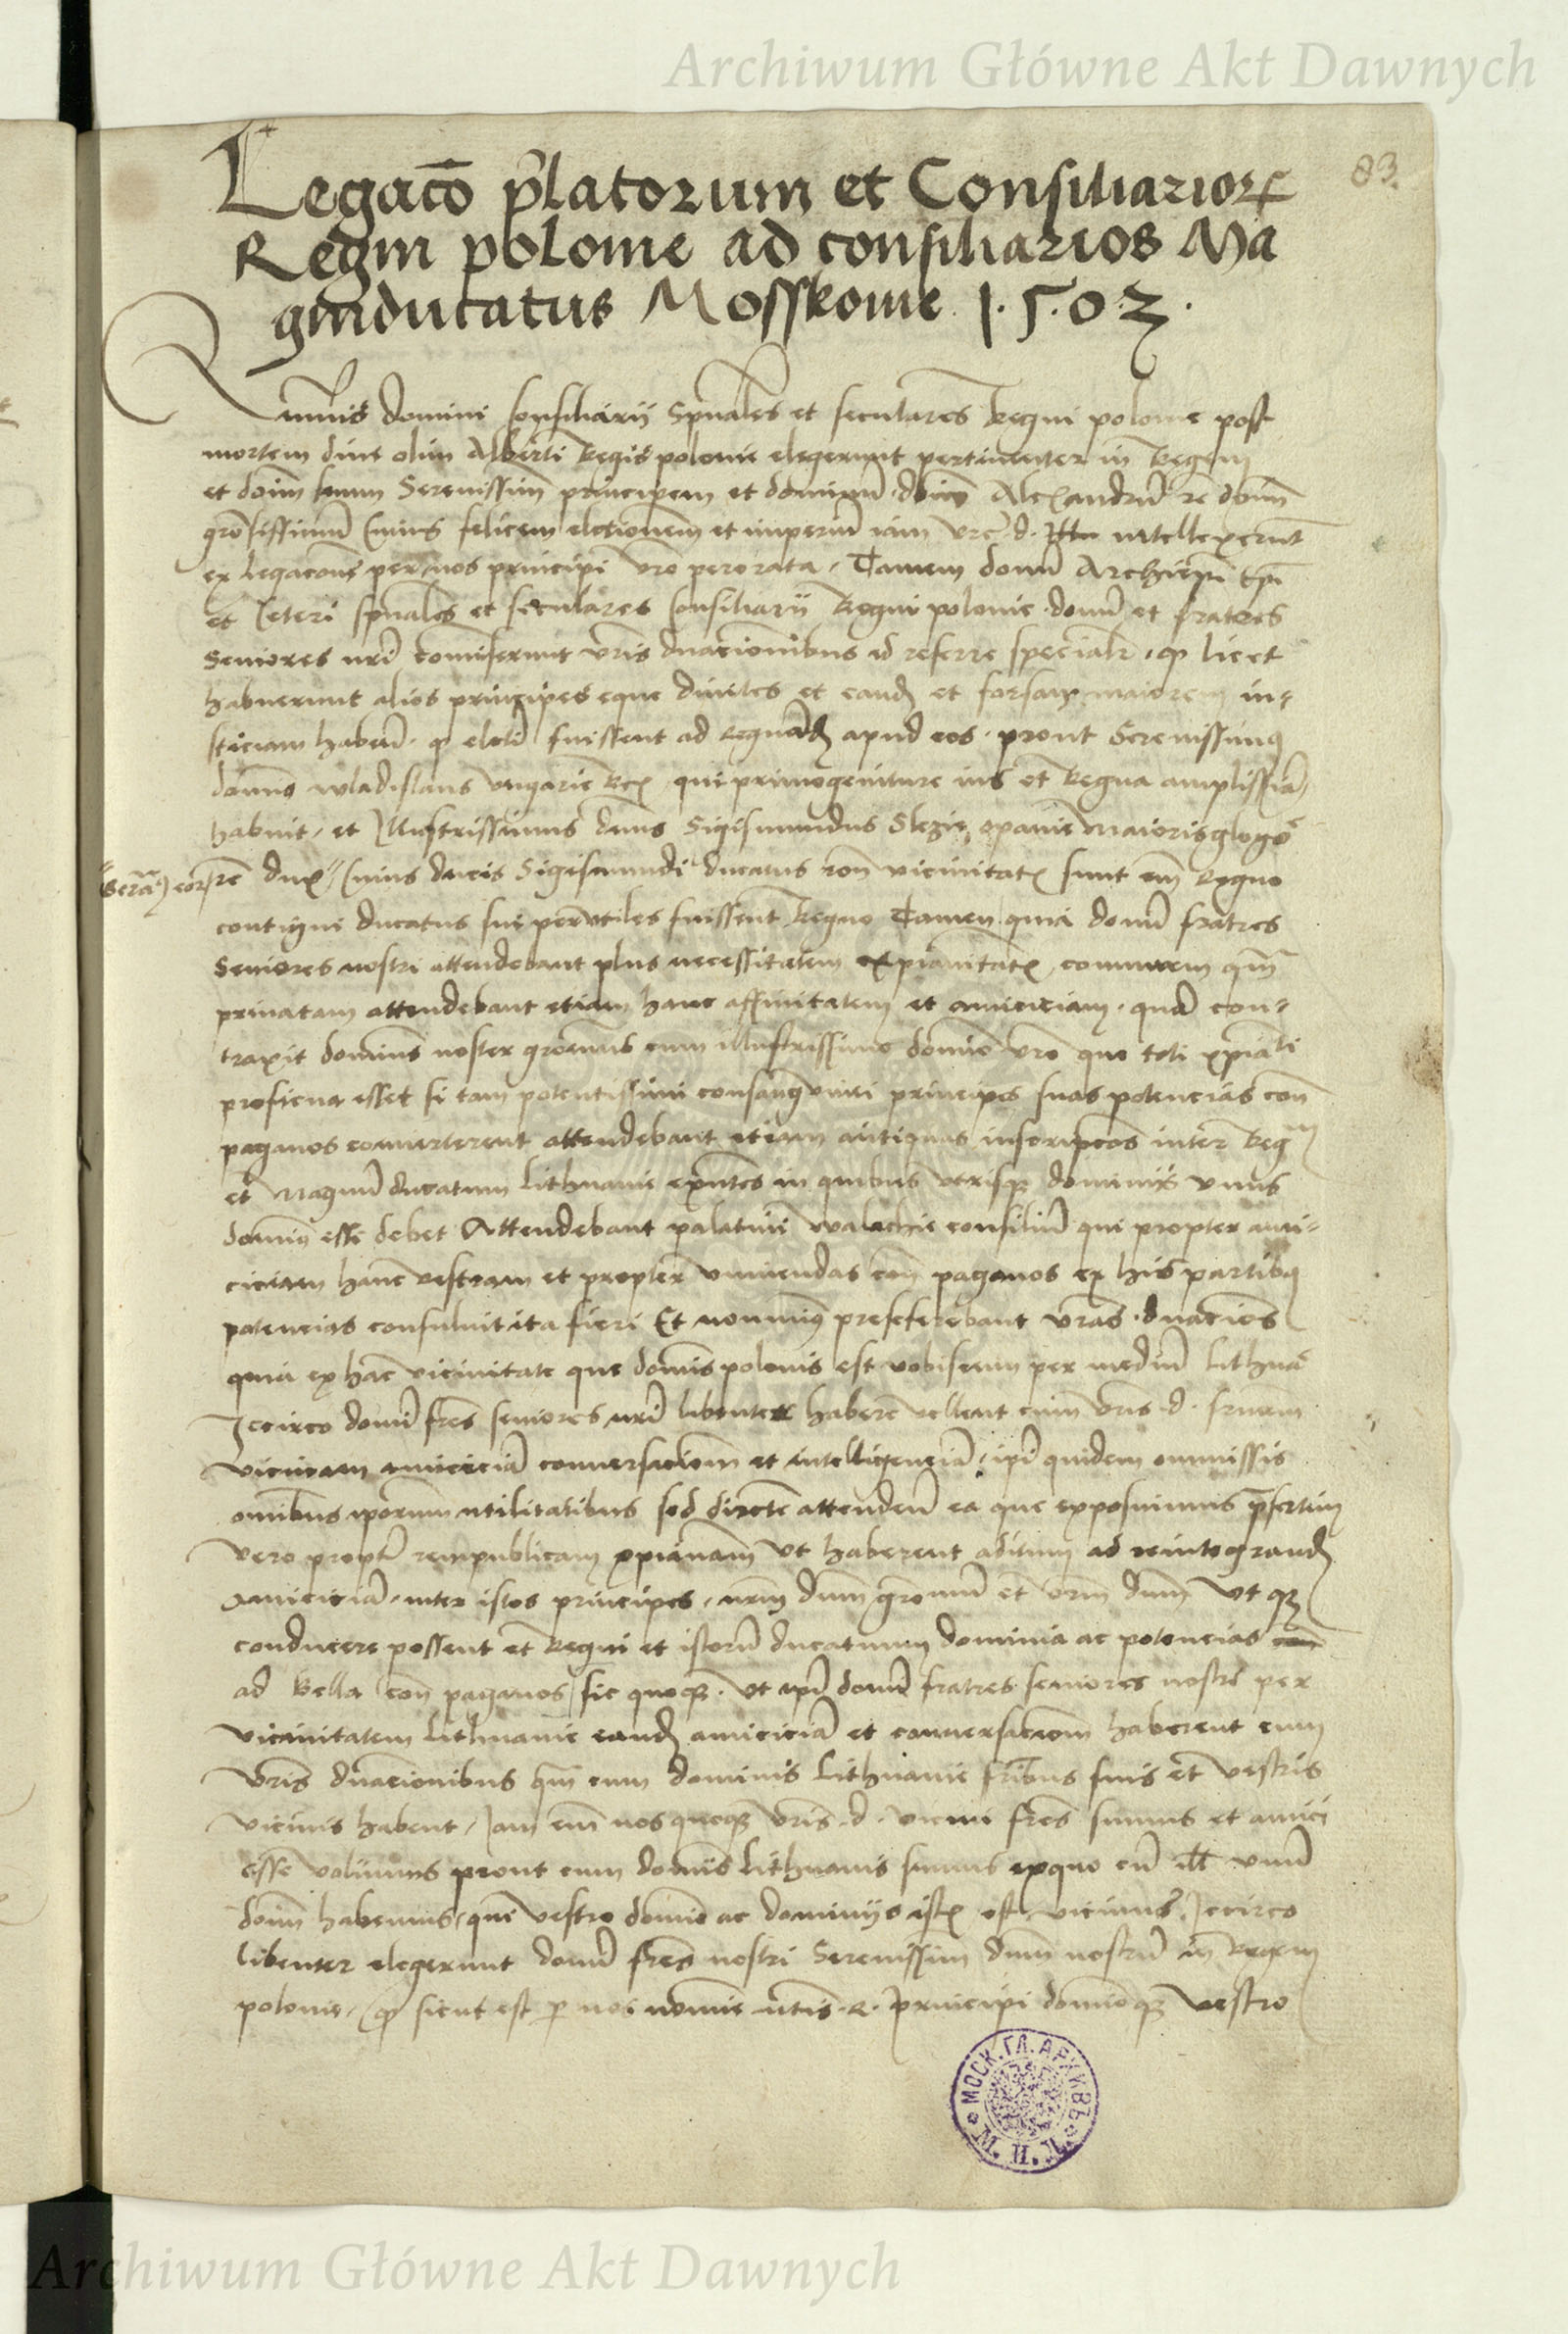 Archiwum Główne Akt Dawnych
83.
Legaco p̄latorum et Consiliarior
Regni polonie ad consiliarios Ma
gniducatus Mosskouie 1.5.0.2.
Quamuis domini Consiliarii Spūales et seculares Regni polonie post
mortem diue olim Alberti Regis polonie elegerunt pertinenter in Regem
et dom̄ suum Serenissim̄ principem et dominū Alexandrū dom̄
felicem electionem et imperiū iam vre d. intellexerunt
ex legacone per nos principi vro perorata. Tamen domī Archiepī Epī
et Ceteri spūales et seculares Consiliarii Regni polonie domī et fratres
Seniores nrī comiserunt vris dnacionibus id referre specialr, qz licet
habuerunt alios principes eque diuites et eand et forsan maiorem in-
sticiam habend. qz electi fuissent ad regnād apud eos. prout Serenissimus
domns wladislaus vngarie Rex qui primogeniture ius et Regna amplissiā
habuit, et Illustrissimus dms Sigismundus Slezie, opauie Maioris glogo
re dux, Cuius ducis Sigismundi ducatus rōn vicinitatis sunt em̄ Regno
contigui ducatus sui perutiles fuissent Regno Tamen quia domī fratres
Seniores nostri attendebant plus necessitatem xpianitatis comunem qm̄
priuatam attendebant etiam hanc affinitatem et amiciciam. quā con-
traxit dominus noster grosmus cum illustrissimo domio vro que toti xpiati
proficua esset si tam potentissimi consanguinei principes suas potencias con
paganos conuerterent attendebant etiam antiquas inscripcoes inter Regm
et Magnū ducatum Lithuanie exntes in quibus vtrisqz dominiis vnus
domin9 esse debet Attendebant palatini walachie consiliū qui propter ami-
ciciam hanc vestram et propter vniendas con paganos ex his partib9
potencias consuluit ita fieri Et nominus preseferebant vras dnaciones
quia ex hac vicinitate que domis polonis est vobiscum per mediū Lithuā
Iccirco domī fres seniores nrī libenter habere vellent cum vris d.
vicinam amiciciā conuersacionem et intelligenciā, ipī quidem omissis
omibus ipsorum utilitatibus sed directe attenden ea que exposuimus p̄sertim
vero propter rempublicam xpianam vt haberent aditum ad reintegrand
amiciciā inter istos principes, nrm dnm grosmū et vrm dnm vt qz
conducere possent et Regni et istorū ducatuum dominia ac potencias
ad Bella con paganos sic quoqz. vt ipī domī fratres seniores nostri per
vicinitatem Lithuanie eand amiciciā et conuersacionem haberent cum
vris dnacionibus qm̄ cum dominis Lithuanie fribus suis et vestris
vicinis habent, Iam em̄ nos quoqz vris d. vicini fres sumus et amici
esse volumus prout cum domis Lithuanis sumus exquo cū ill vnū
dom̄ habemus, qui vestro domio ac dominiis istis est vicinus, Iccirco
libenter elegerunt domī fres nostri Serenissim dnm nostrū in Regem
polonie, qz sicut est p nos nomie Principi domioqz vestro
МОСК. ГЛ. АРХИВЪ М. И. Д.
Archiwum Główne Akt Dawnych